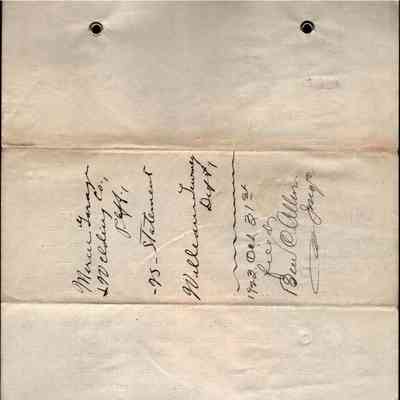 Merca Garage
& Welding Co,
Plff,
-vs- Statement
William Turney
Deft,
1922 Oct 31st
Ben O Allen